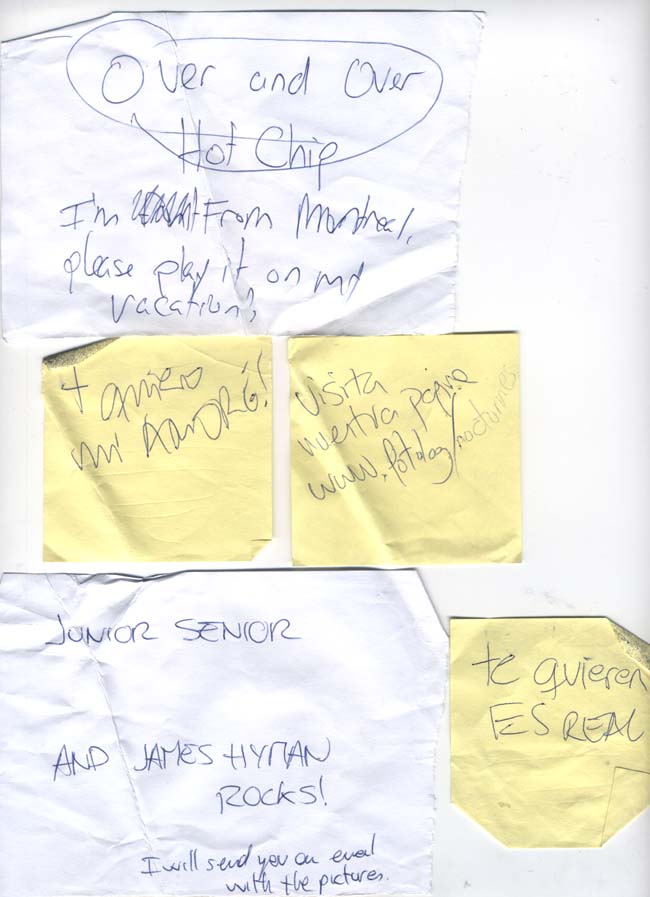 Over and Over
Hot Chip
I'm From Montreal,
please play it on my
vacation?
+ quiero
mi AMOR
visita
nuestra pagina
www.fotolog/nocturnes
JUNIOR SENIOR
AND JAMES HYMAN
ROCKS!
I will send you an email
with the pictures.
te quieren
ES REAL